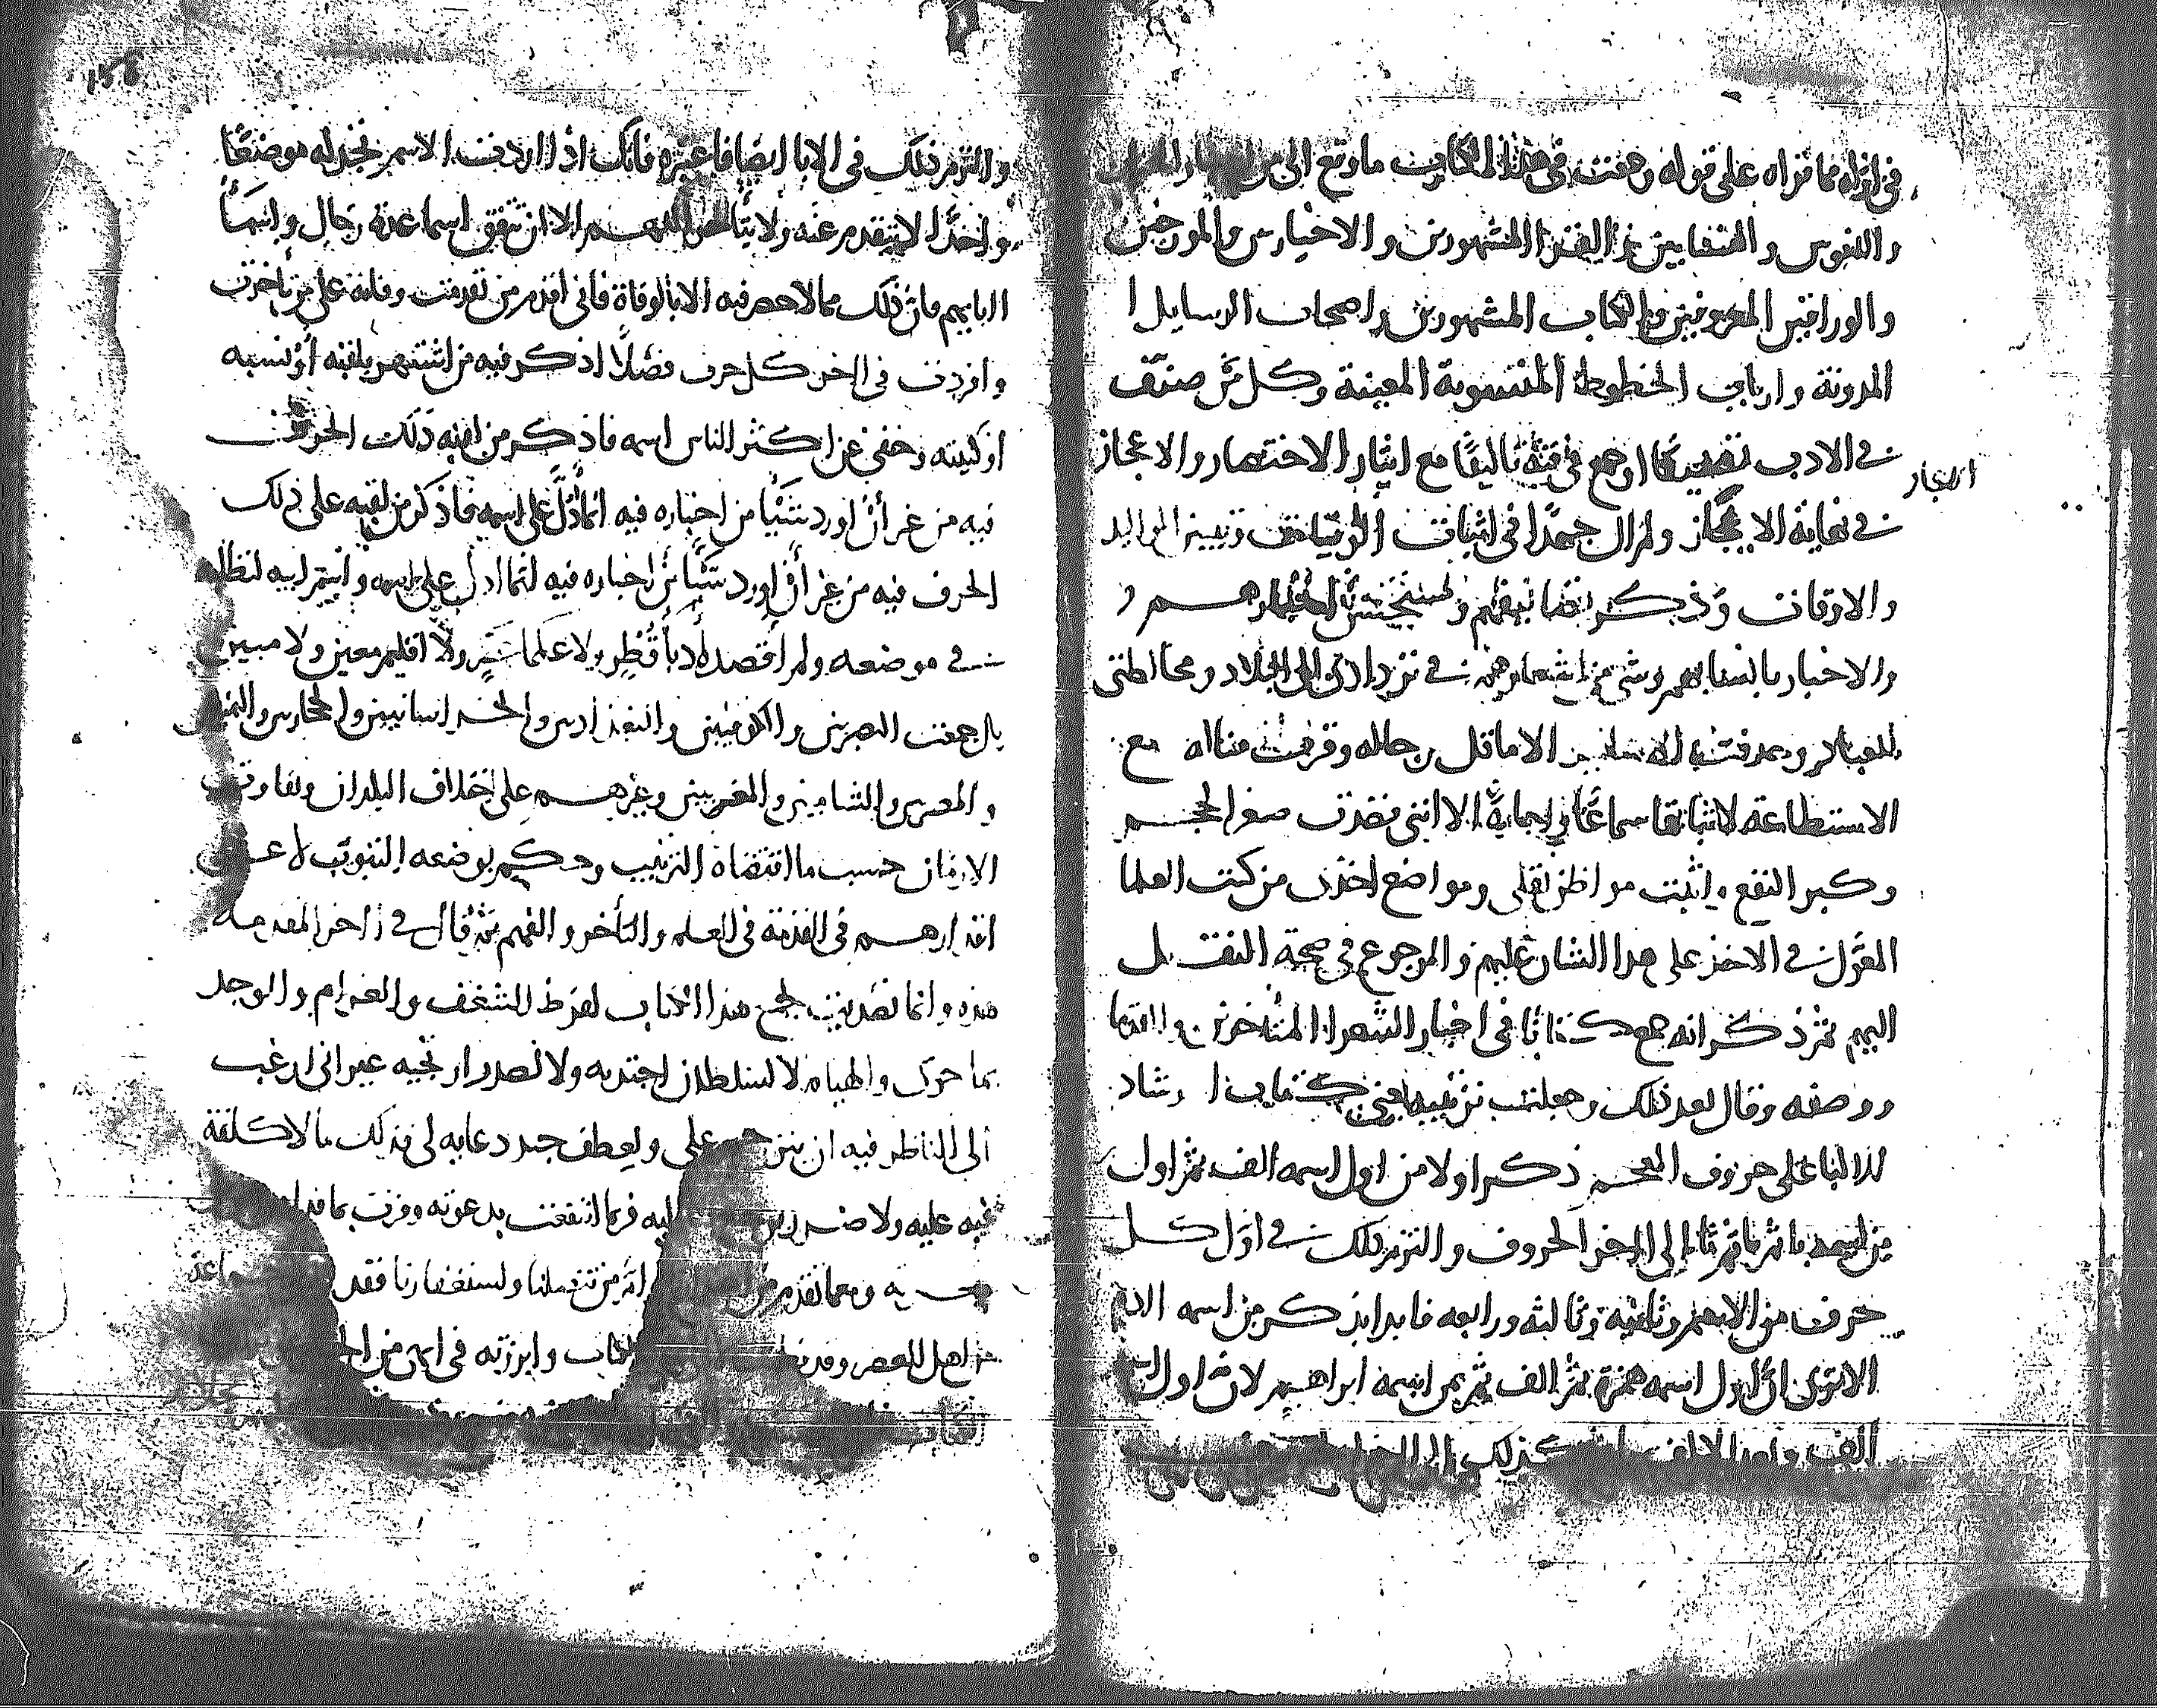 في اوله مما قراه على قوله وجمعت في هذا الكتاب ما وقع الي من اخبار
واللغويين والنسابين والقرا المشهورين والاخباريين والمورخين
والوراقين المعروفين والكتاب المشهورين واصحاب الرسايل ا
المدونة وارباب الخطوط المنسوبة المعينة وكل من صنف
في الادب تصنيفا او جمع في فنه تاليفا مع ايثار الاختصار والاعجاز
الايجاز
في نهاية الايجاز ولم ال جهدا في اثبات الوفيات وتبيين المواليد
والاوقات وذكر تصانيفهم ومستحسن اخبارهم و
والاخبار بانسابهم وشي من اشعارهم في تردادي الى البلاد ومخالطتي
للعباد وحذفت الاسانيد الا ما قل رجاله وقرب مناله مع
الاستطاعة لاثباتها سماعا واجازة الا انني قصدت صغر الحجم
وكبر النفع واثبت مواظن نقلي ومواضع اخذي من كتب العلما
المعول في الاخذ على هذا الشان عليهم والمرجوع في صحة النقل
اليهم ثم ذكر انه جمع كتابا في اخبار الشعرا المتاخرين والقدما
ووصفه وقال بعد ذلك وجعلت ترتيبه يعني كتاب ا رشاد
الالبا على حروف المعجم ذكر اولا من اول اسمه الف ثم اول
من اسمه با ثم تا ثم ثا الى اخر الحروف والتزم ذلك في اول كل
حرف من الاسم وثانيه وثالثه ورابعه فابدا بذكر من اسمه ادم
الا ترى ان اول اسمه همزة ثم الف ثم من اسمه ابراهيم لان اول
الف وبعد الالف كذلك الى اخر
والتزم ذلك في الابا ايضا فاعتبره فانك اذا اردت الاسم تجد له موضعا
واحدا لا يتقدم عنه ولا يتاخر اللهم الا ان تتفق اسما عدة رجال واسما
ابايهم فان ذلك مما لا حصر فيه الا بالوفاة فاني اقدم من تقدمت وفاته على من تاخرت
وافردت في اخر كل حرف فصلا اذكر فيه من اشتهر بلقبه او نسبه
او كنيته وخفي عن اكثر الناس اسمه فاذكر من لقبه ذلك الحرف
فيه من غير ان اورد شيا من اخباره فيه انما ادل على اسمه فاذكر من لقبه على ذلك
الحرف فيه من غير ان اورد شيا من اخباره فيه انما ادل على اسمه واسم ابيه لتطلبه
في موضعه ولم اقصد ادبا قطر ولا علما ولا اقليم معين ولا مبين
بل جمعت البصريين والكوفيين والبغداديين والخراسانيين والحجازيين واليمنيين
والمصريين والشاميين والمغربيين وغيرهم على اختلاف البلدان وتفاوت
الازمان حسب ما اقتضاه الترتيب وحكم بوضعه التبويب لا على
اقدارهم في القدمة في العلم والتاخر والفهم ثم قال في اخر المقدمة
هذه وانما تصديت لجمع هذا الكتاب لفرط الشغف والغرام والوجد
بما حوى والهيام لا لسلطان اجتديه ولا لصدر ارتجيه غير اني ارغب
الى الناظر فيه ان يترحم علي ويعطف جيد دعايه لي فذلك ما لا كلفة
فيه عليه ولا ضرر اليه فربما انتفعت بدعوته وفزت بما قد
به ومما تقدم من
من اهل العصر وقد الكتاب وابرزته في